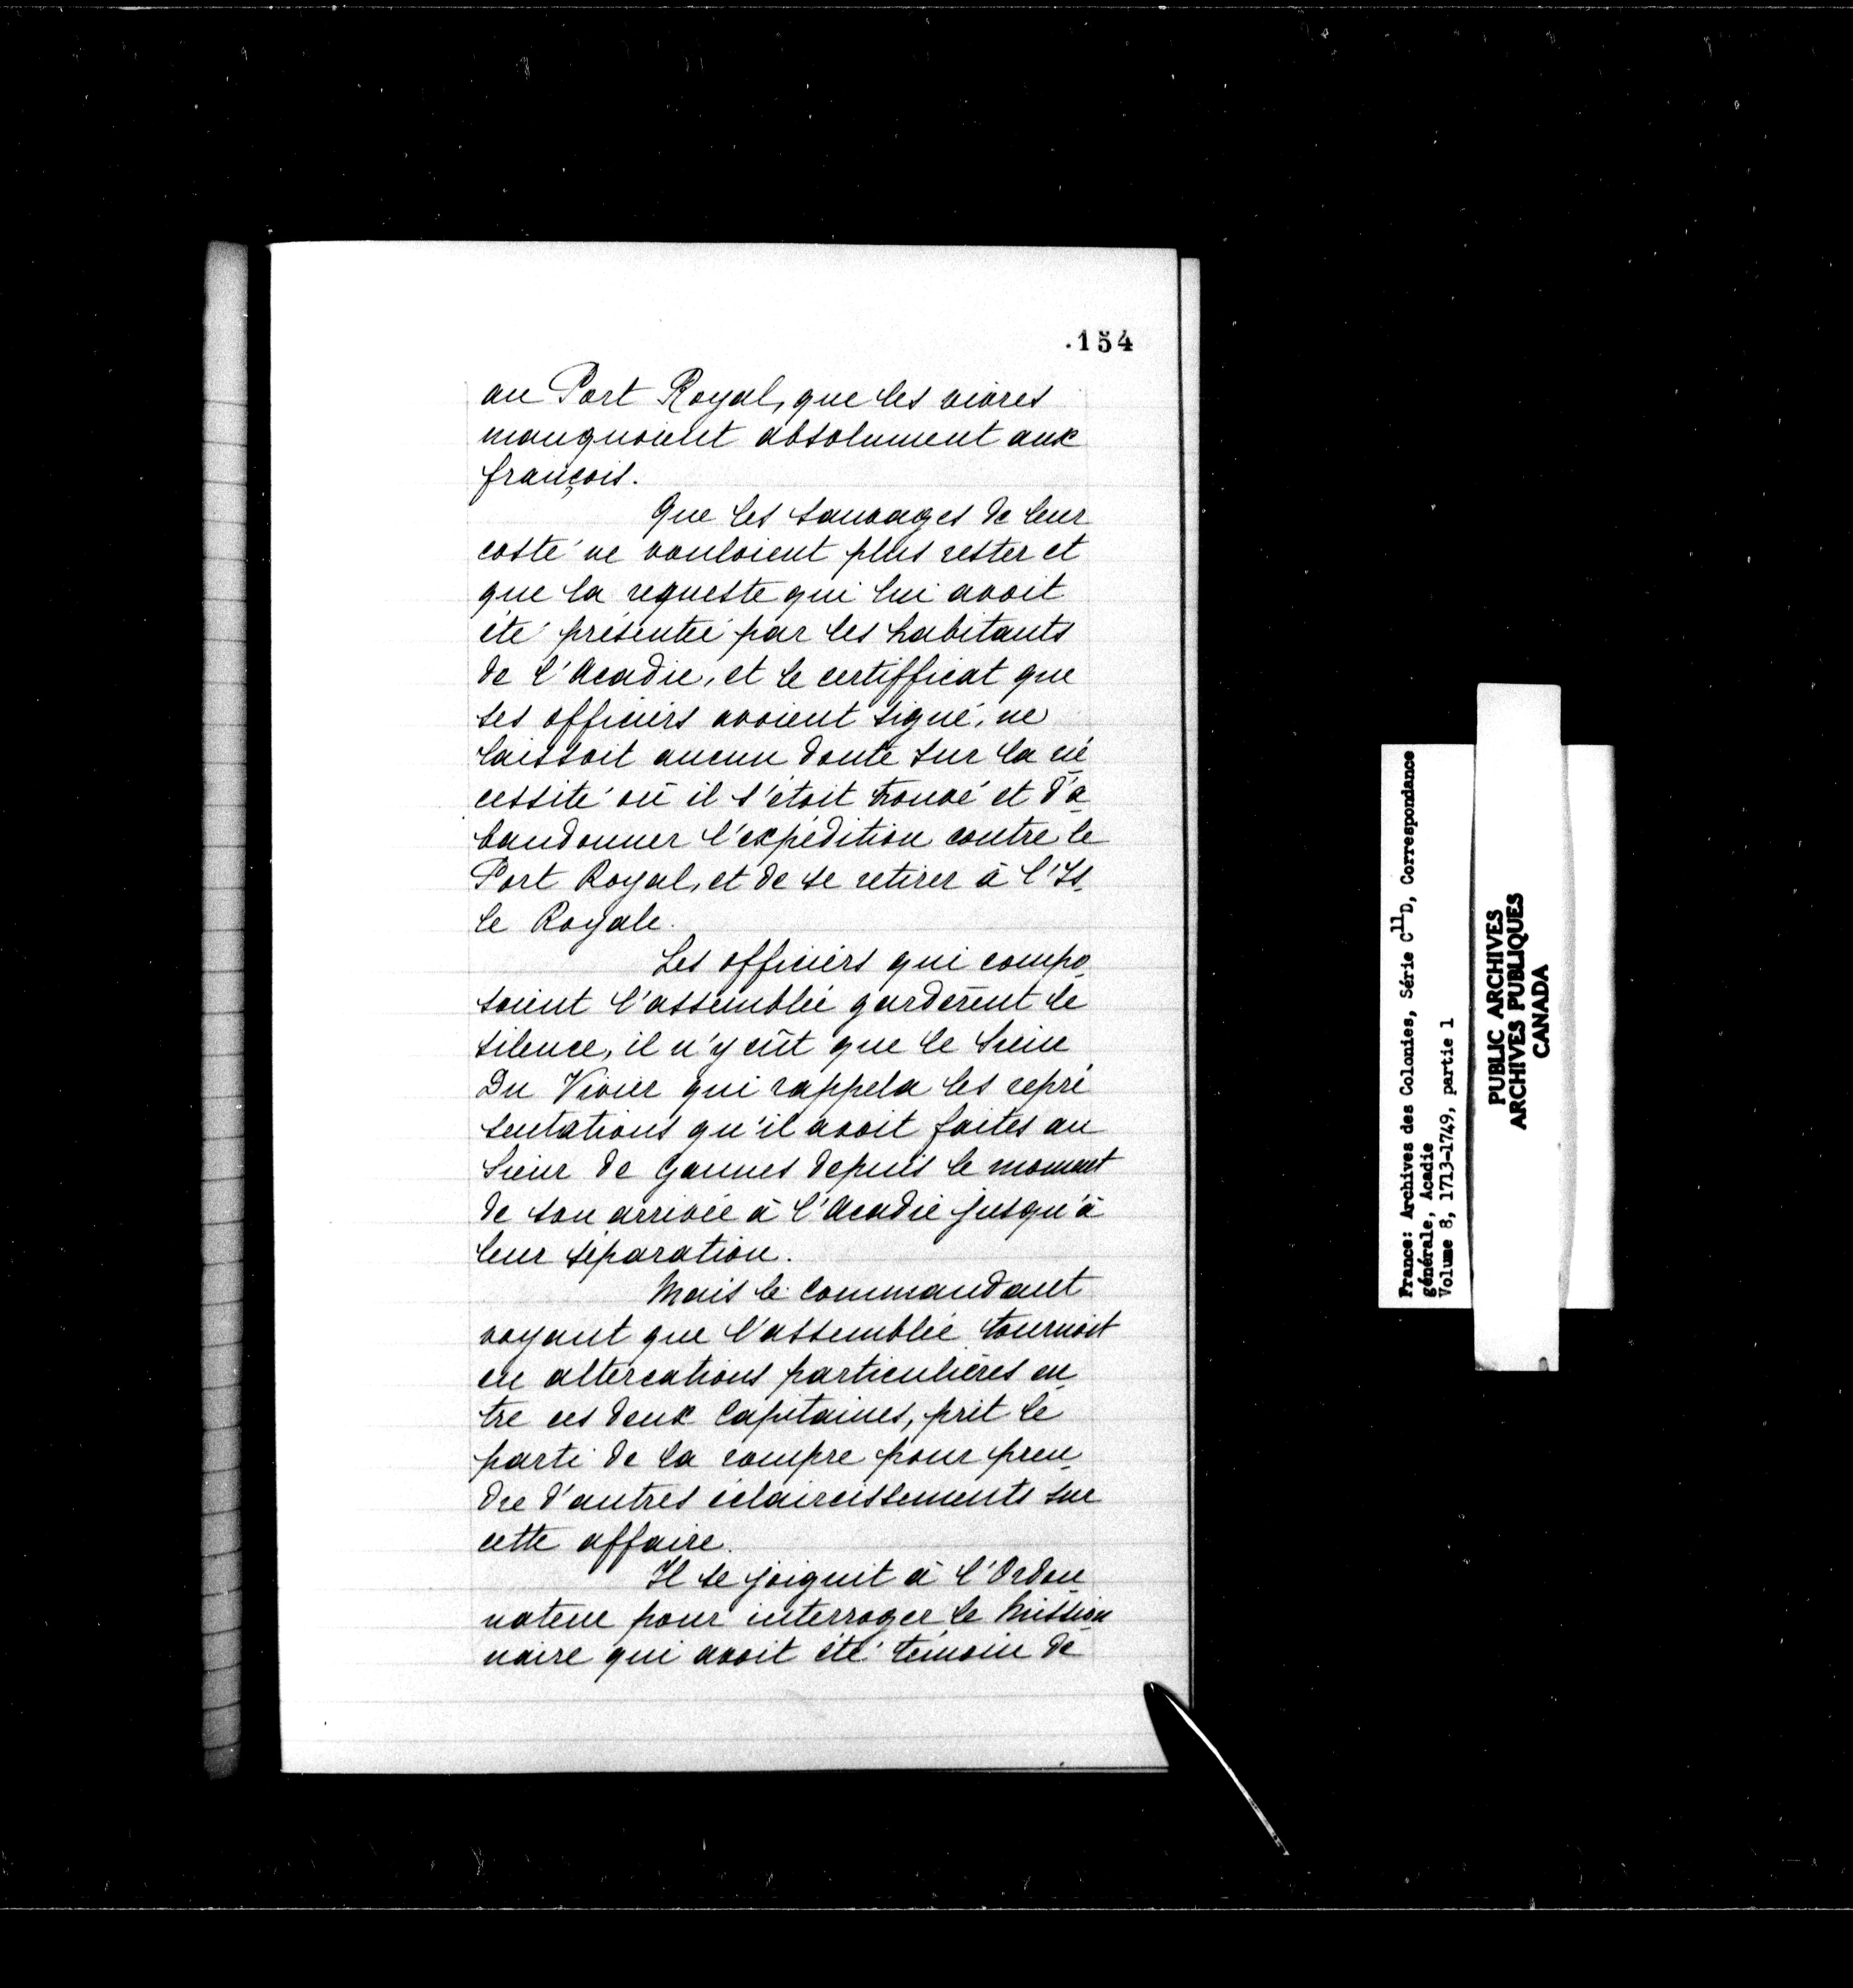 .154
au Port Royal, que les vivres
manquoient absolument aux
françois.
Que les sauvages de leur
costé ne vouloient plus rester et
que la requeste qui lui avoit
été présentée par les habitants
de l'Acadie, et le certifficat que
ses officiers avoient signé, ne
laissoit aucun doute sur la né
cessité où il s'étoit trouvé et d'a
bandonner l'expédition contre le
Port Royal, et de se retirer à l'Is,
le Royale.
Les officiers qui compo,
soient l'assemblée gardèrent le
silence, il n'y eût que le Sieur
Du Vivier qui rappela les repré
sentations qu'il avoit faites au
Sieur de Gannes depuis le moment
de son arrivée à l'Acadie jusqu'à
leur séparation.
Mais le Commandant
voyant que l'assemblée tournoit
en altercations particulières en
tre ces deux Capitaines, prit le
parti de la rompre pour pren,
dre d'autres éclaircissements sur
cette affaire.
Il se joignit à l'Ordon
nateur pour interroger le Mission
naire qui avoit été témoin de
France: Archives des Colonies, Série C11D, Correspondance
générale, Acadie
Volume 8, 1713-1749, partie 1
PUBLIC ARCHIVES
ARCHIVES PUBLIQUES
CANADA